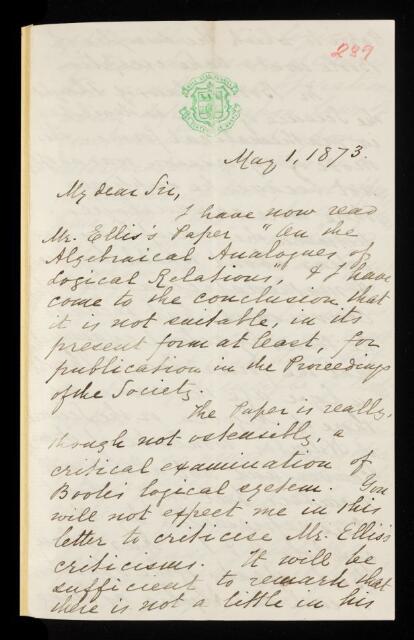 289
May 1, 1873.
My dear Sir,
I have now read
Mr. Ellis's Paper "On the
Algebraical Analogues of
Logical Relations", & I have
come to the conclusion that
it is not suitable, in its
present form at least, for
publication in the Proceedings
of the Society.
The Paper is really,
though not ostensibly, a
critical examination of
Boole's logical system. You
will not expect me in this
letter to criticise Mr. Ellis's
criticisms. It will be
sufficient to remark that
there is not a little in his